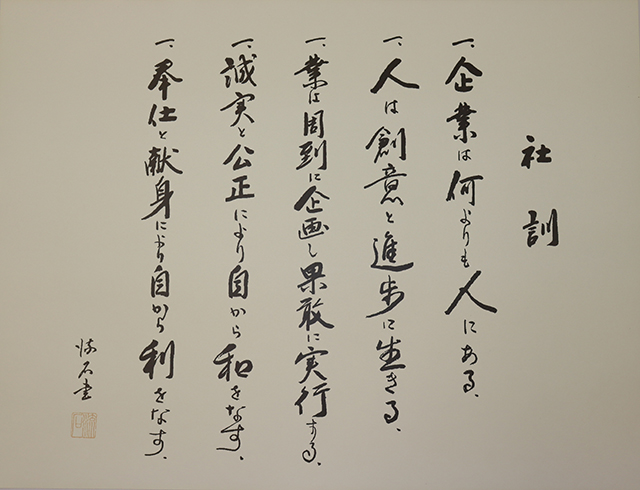 社訓
一、企業は何よりも人にある、
一、人は創意と進歩に生きる、
一、業は周到に企画し果敢に実行する、
一、誠実と公正により自から和をなす、
一、奉仕と献身により自から利をなす、
石書